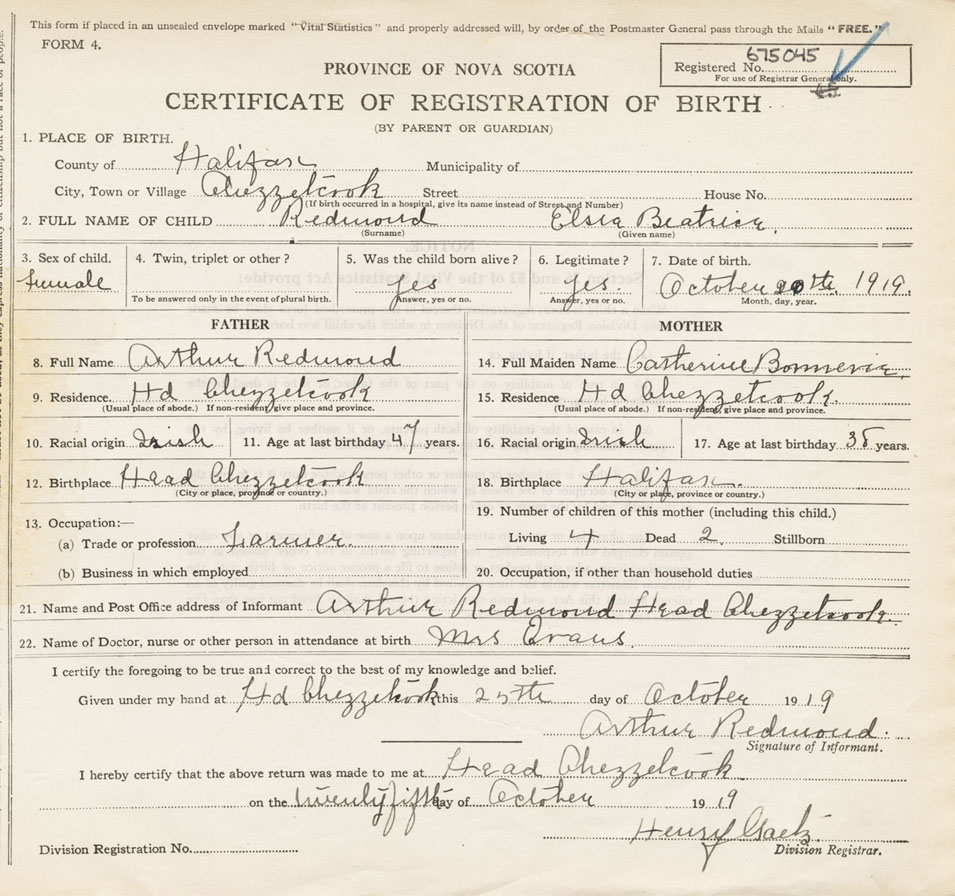 This form if placed in an unsealed envelope marked "Vital Statistics" and properly addressed will, by order of the Postmaster General pass through the Mails "FREE."
FORM 4.
675045
Registered No.
For use of Registrar General only.
PROVINCE OF NOVA SCOTIA
CERTIFICATE OF REGISTRATION OF BIRTH
(BY PARENT OR GUARDIAN)
1. PLACE OF BIRTH.
County of Halifax Municipality of
City, Town or Village Chezzetcook Street House No.
(If birth occurred in a hospital, give its name instead of Street and Number)
2. FULL NAME OF CHILD Redmond Elsia Beatrice.
(Surname) (Given name)
3. Sex of child. 4. Twin, triplet or other? 5. Was the child born alive? 6. Legitimate? 7. Date of birth.
Female yes yes. October 20th 1919.
To be answered only in the event of plural birth. Answer, yes or no. Answer, yes or no. Month, day, year.
FATHER MOTHER
8. Full Name Arthur Redmond 14. Full Maiden Name Catherine
9. Residence. Hd Chezzetcook 15. Residence Hd Chezzetcook.
(Usual place of abode.) If non-resident, give place and province. (Usual place of abode.) If non-resident, give place and province.
10. Racial origin Irish 11. Age at last birthday 47 years. 16. Racial origin Irish 17. Age at last birthday 38 years.
12. Birthplace Head Chezzetcook 18. Birthplace Halifax.
(City or place, province or country.) (City or place, province or country.)
13. Occupation:— 19. Number of children of this mother (including this child.)
(a) Trade or profession Farmer. Living 4 Dead 2. Stillborn
(b) Business in which employed 20. Occupation, if other than household duties
21. Name and Post Office address of Informant Arthur Redmond Head Chezzetcook.
22. Name of Doctor, nurse or other person in attendance at birth Mrs Evans.
I certify the foregoing to be true and correct to the best of my knowledge and belief.
Given under my hand at Hd Chezzetcook this 25th day of October 1919
Arthur Redmond.
Signature of Informant.
I hereby certify that the above return was made to me at Head Chezzetcook
on the twenty fifth day of October 1919
Henry Gaetz
Division Registration No. Division Registrar.